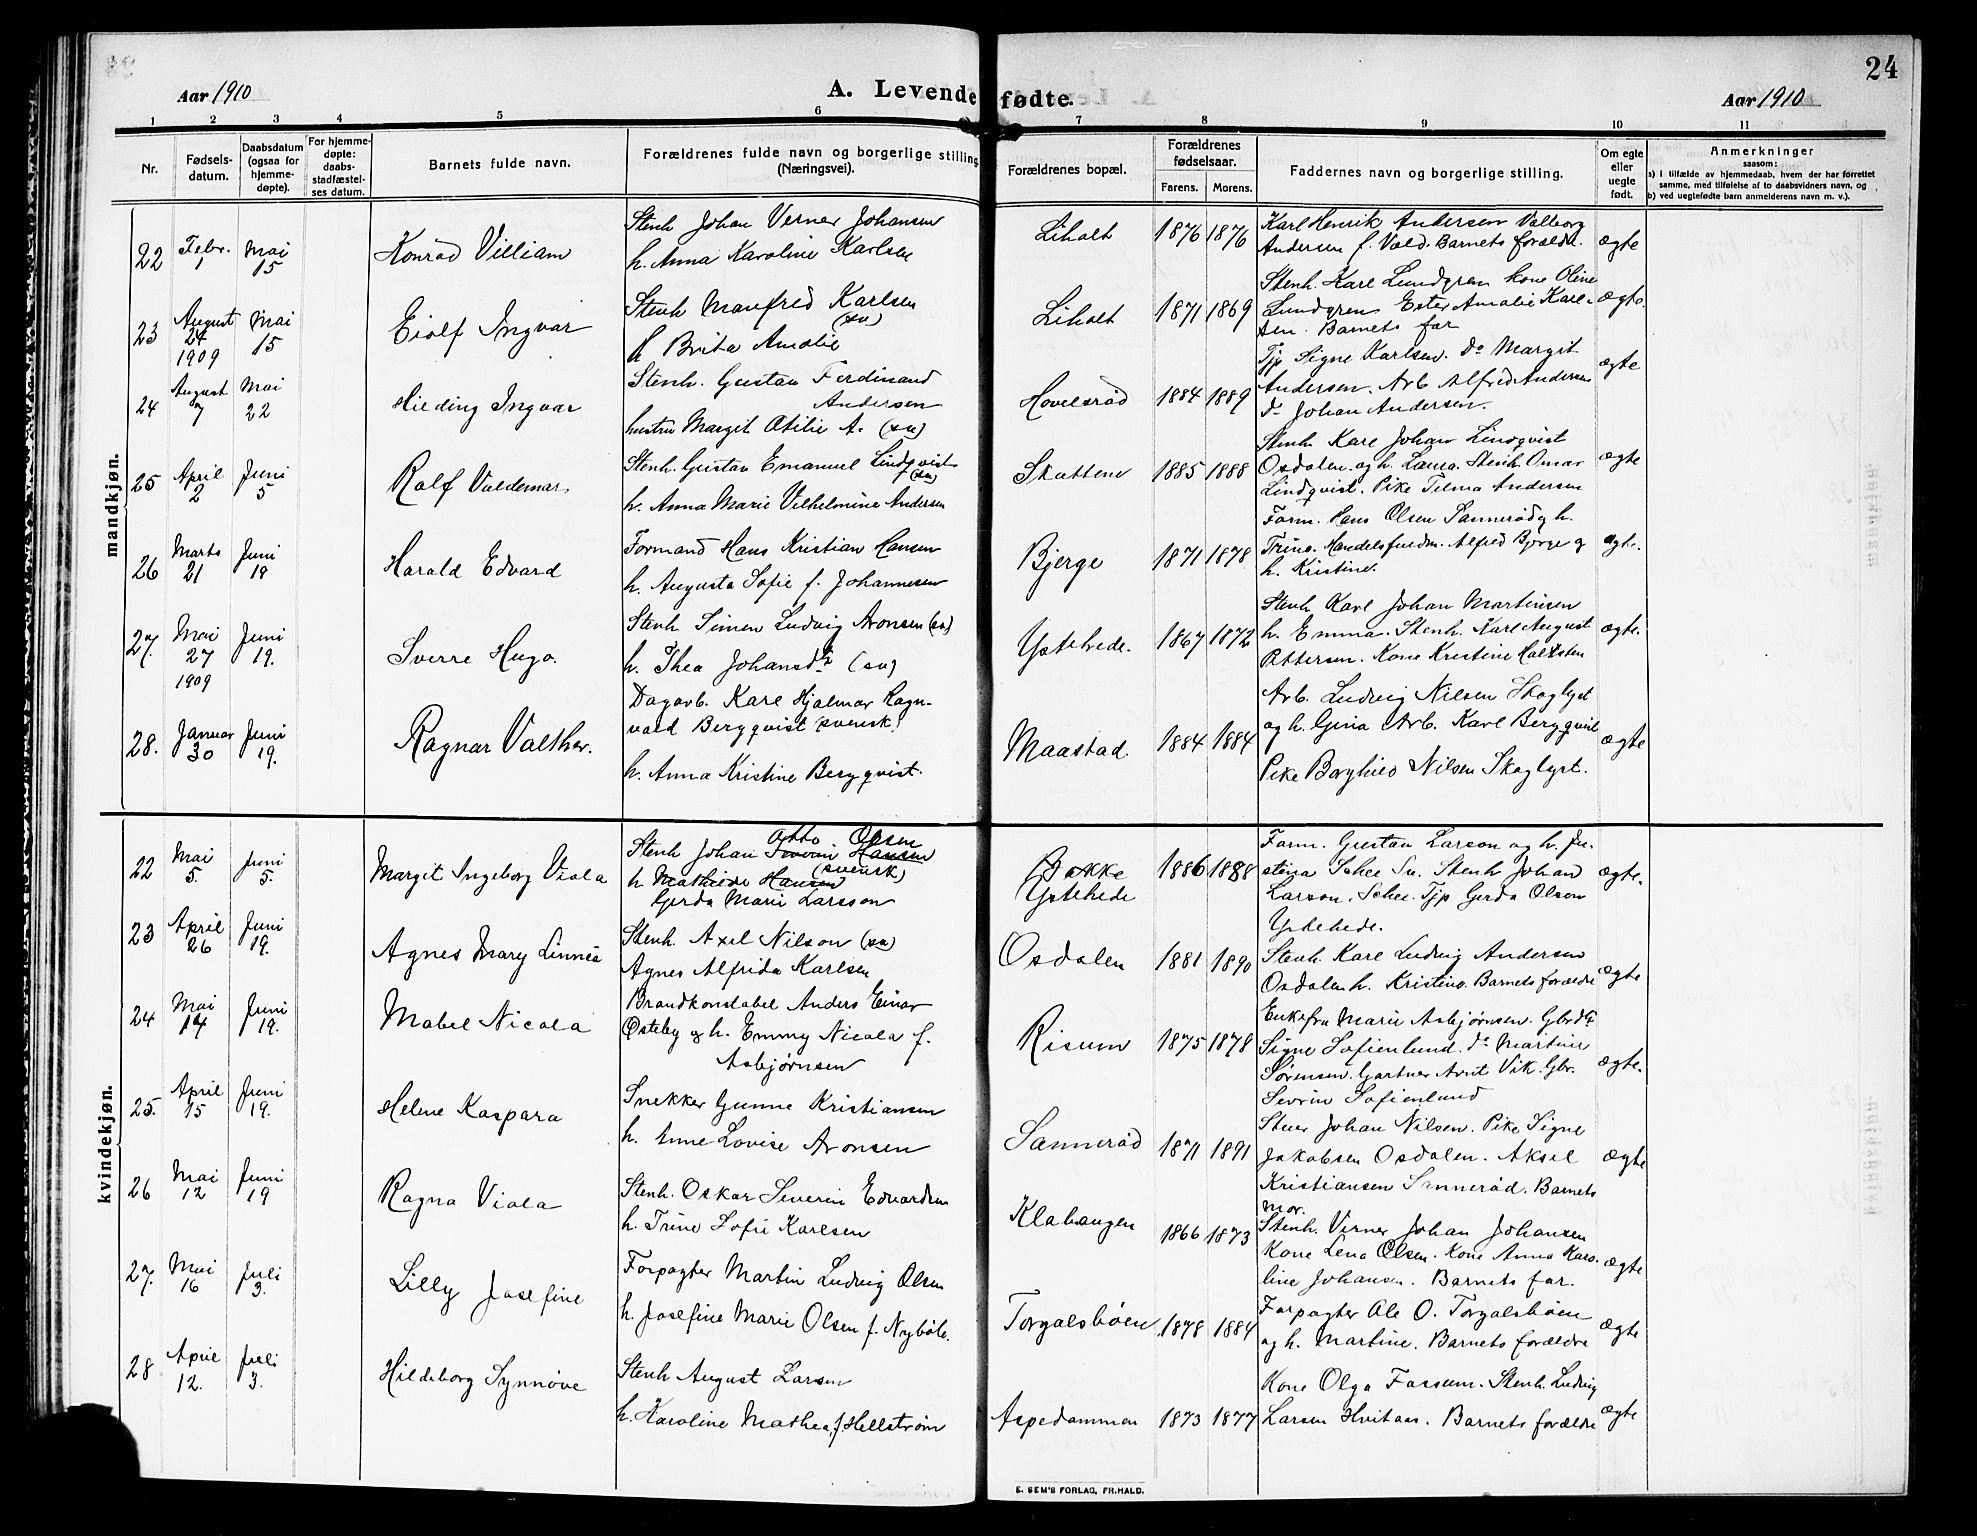 24
Aar 1910
A. Levende fødte.
Aar 1910
1 2 3 4 5 6 7 8 9 10 11
Nr.
Fødselsdatum.
Daabsdatum (ogsaa for hjemmedøpte).
For hjemmedøpte: daabsstadfæstelses datum.
Barnets fulde navn.
Forældrenes fulde navn og borgerlige stilling (Næringsvei).
Forældrenes bopæl.
Forældrenes fødselsaar.
Farens. Morens.
Faddernes navn og borgerlige stilling.
Om egte eller uegte født.
Anmerkninger
saasom:
a) i tilfælde av hjemmedaab, hvem der har forrettet samme, med tilføielse af to daabsvidners navn, og
b) ved uegtefødte barn anmelderens navn m. v.).
mandkjøn.
22 Febr. 1 Mai 15 Konrad Villiam
Stenh Johan Verner Johansen
h. Anna Karoline Karlsen
Liholt 1876 1876
Karl Henrik Andersen Valborg
Andersen f. Vold. Barnets forældre.
ægte
23 August 24 1909 Mai 15 Eiolf Ingvar
Stenh Manfred Karlsen
(sv)
h Brita Amalie
Liholt 1871 1869
Stenh. Karl Lundgren kone Oline
Lundgren Ester Amalie Karl-
sen. Barnets far
ægte.
24 August 7 Mai 22 Hilding Ingvar
Stenh. Gustav Ferdinand
Andersen
hustru Margit Otilie A. (sv)
Hovelsrød 1884 1889
Tjp Signe Karlsen. Do Margit
Andersen. Arb Alfred Andersen
Do Johan Andersen.
ægte
25 April 2 Juni 5 Rolf Valdemar
Stenh. Gustav Emanuel Lindqvist
(sv)
h. Anna Marie Vilhelmine Andersen
Skottene 1885 1888
Stenh Karl Johan Lindqvist
Osdalen og h. Laura. Stenh. Omar
Lindqvist. Pike Telma Andersen
ægte
26 Marts 21 Juni 19 Harald Edvard
Formand Hans Kristian Hansen
h. Augusta Sofie f. Johannesen
Bjerge 1871 1878
Form. Hans Olsen Sannerød og h.
Trine. Handelsfuldm. Alfred Bjerge g
h. Kristine.
ægte.
27. Mai 27 1909 Juni 19. Sverre Hugo.
Stenh Simen Ludvig Aronsen (sv)
h. Thea Johansdtr (sv)
Ystehede. 1867 1872
Stenh Karl Johan Martinsen
h. Emma. Stenh. Karl August
Pettersen. Kone Kristine Holtsten
ægte.
28. Januar 30 Juni 19. Ragnar Valther.
Dagarb. Karl Hjalmar Ragn-
vald Bergqvist svensk!
h. Anna Kristine Bergqvist.
Maastad. 1884 1884
Arb. Ludvig Nilsen Skoglyst
og h. Gina Arb. Karl Bergqvist
Pike Borghild Nilsen Skoglyst.
ægte
kvindekjøn.
22 Mai 5. Juni 5. Margit Ingeborg Viola
Otto Olsen
Stenh Johan Severin Hansen
(svensk)
h Mathilde Hansen
Gerda Marie Larsson
Bakke
Ystehede
1886 1888
Form. Gustav Larson og h. Ju-
stina Schee Sv. Stenh Johan
Larson. Schee. Tjp Gerda Olson
Ystehede.
ægte.
23 April 26 Juni 19. Agnes Mary Linnéa
Stenh. Axel Nilson (sv)
Agnes Alfrida Karlsen
Osdalen 1881 1890
Stenh Karl Ludvig Andersen
Osdalen h. Kristine. Barnets forældre
ægte
24 Mai 14 Juni 19. Mabel Nicola
Brandkonstabel Anders Einar
Østeby g h. Emmy Nicola f.
Asbjørnsen
Risum 1875 1878
Enkefru Marie Asbjørnsen. Gbrd.
Signe Sofienlund. do Martine
Sørensen. Gartner Arnt Vik. Gbr.
Severin Sofienlund
ægte.
25. April 15 Juni 19. Helene Kaspara
Snekker Gunne Kristiansen
h. Anne Lovise Aronsen
Sannerød 1871 1891
Stuer Johan Nilsen. Pike Signe
Jakobsen Osdalen. Aksel
Kristiansen Sannerød. Barnets
mor.
ægte
26 Mai 12 Juni 19 Ragna Viola
Stenh. Oskar Severin Edvardsen
h. Trine Sofie Karlsen
Klahaugen 1866 1873
Stenh. Verner Johan Johansen
Kone Lena Olsen. Kone Anna Karo-
line Johansen. Barnets far.
ægte
27. Mai 16 Juli 3. Lilly Josefine
Forpagter Martin Ludvig Olsen
h. Josefine Marie Olsen f. Nybøle.
Torgalsbøen 1878 1884
Forpagter Ole O. Torgalsbøen
og h. Martine. Barnets forældre
ægte
28 April 12. Juli 3. Hildeborg Synnøve
Stenh August Larsen
h. Karoline Mathea, f. Hellstrøm
Aspedammen 1873 1877
Kone Olga Fossum. Stenh. Ludvig
Larsen Hvitaas. Barnets forældre
ægte
E. SEM'S FORLAG, FR.HALD.